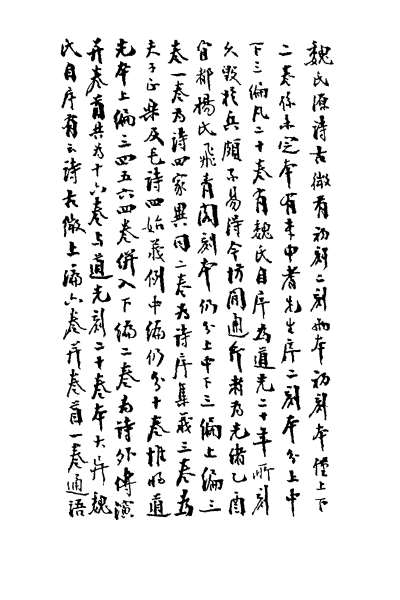 魏氏源詩古微有初刻二刻兩本初刻本僅上下
二卷係未完本有李申耆先生序二刻本分上中
下三編凡二十卷有魏氏自序為道光二十年所刻
久毀於兵頗不易得今坊間通行者為光緒乙酉
宜都楊氏飛青閣刻本仍分上中下三編上編三
卷一卷為詩四家異同二卷為詩序集義三卷為
夫子正樂及毛詩四始義例中編仍分十卷惟將道
光本上編三四五六四卷併入下編二卷為詩外傳演
弁卷首共為十六卷与道光刻二十卷本大異魏
氏自序有云詩古微上編六卷并卷首一卷通語